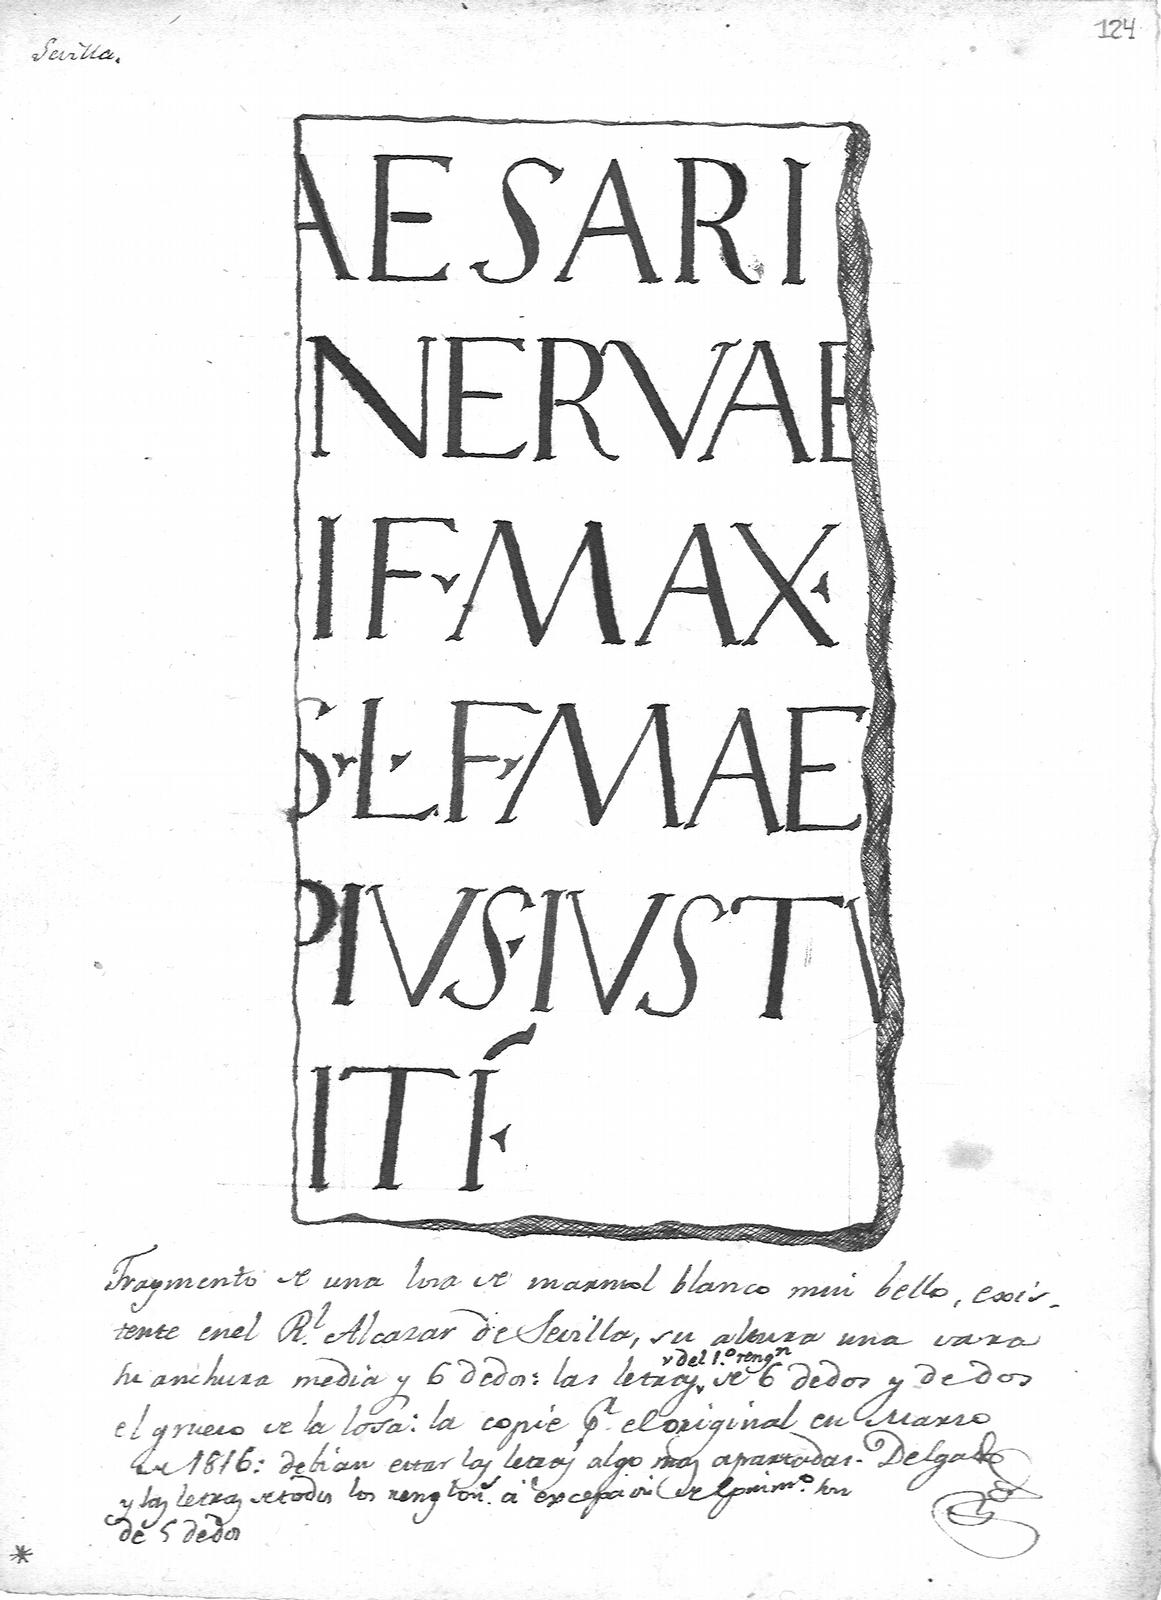 124
Sevilla.
AESARI
NERVAE
IF MAX
S L F MAE
PIUS IUSTV
ITÉ
Fragmento de una losa de marmol blanco mui bello, exis-
tente en el Rl. Alcazar de Sevilla, su altura una vara
su anchura media y 6 dedos: las letras de 6 dedos y de dos
v del 1.º rengn
el grueso de la losa: la copié pr. el original en Marzo
de 1816: debian estar las letras algo mas apartadas. Delgado
y las letras de todos los renglons. a excepcion del primo. son
de 5 dedos
*